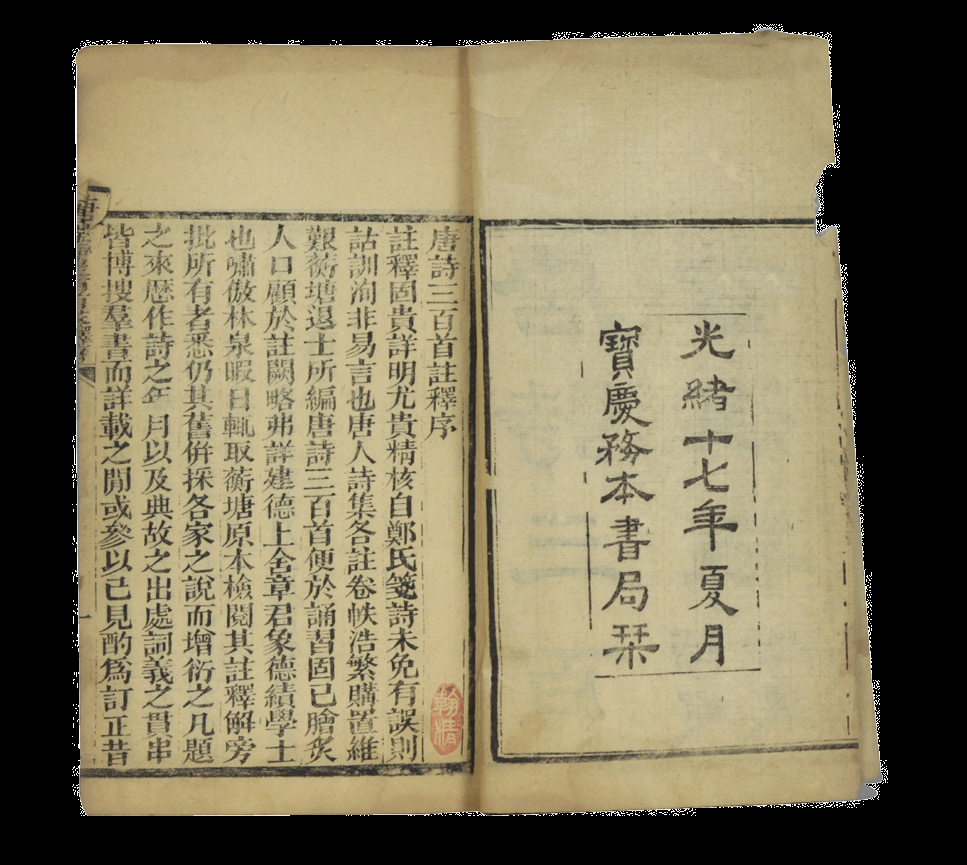 光緒十七年夏月
寶慶務本書局栞
唐詩三百首註釋序
註釋固貴詳明尤貴精核自鄭氏箋詩未免有誤則
詁訓洵非易言也唐人詩集各註卷帙浩繁購置維
艱蘅塘退士所編唐詩三百首便於誦習固已膾炙
人口顧於註闕略弗詳建德上舍章君象德績學士
也嘯傲林泉暇日輒取蘅塘原本檢閱其註釋解旁
批所有者悉仍其舊併採各家之說而增衍之凡題
之來歷作詩之年月以及典故之出處詞義之貫串
皆博搜羣書而詳載之閒或參以己見酌為訂正昔